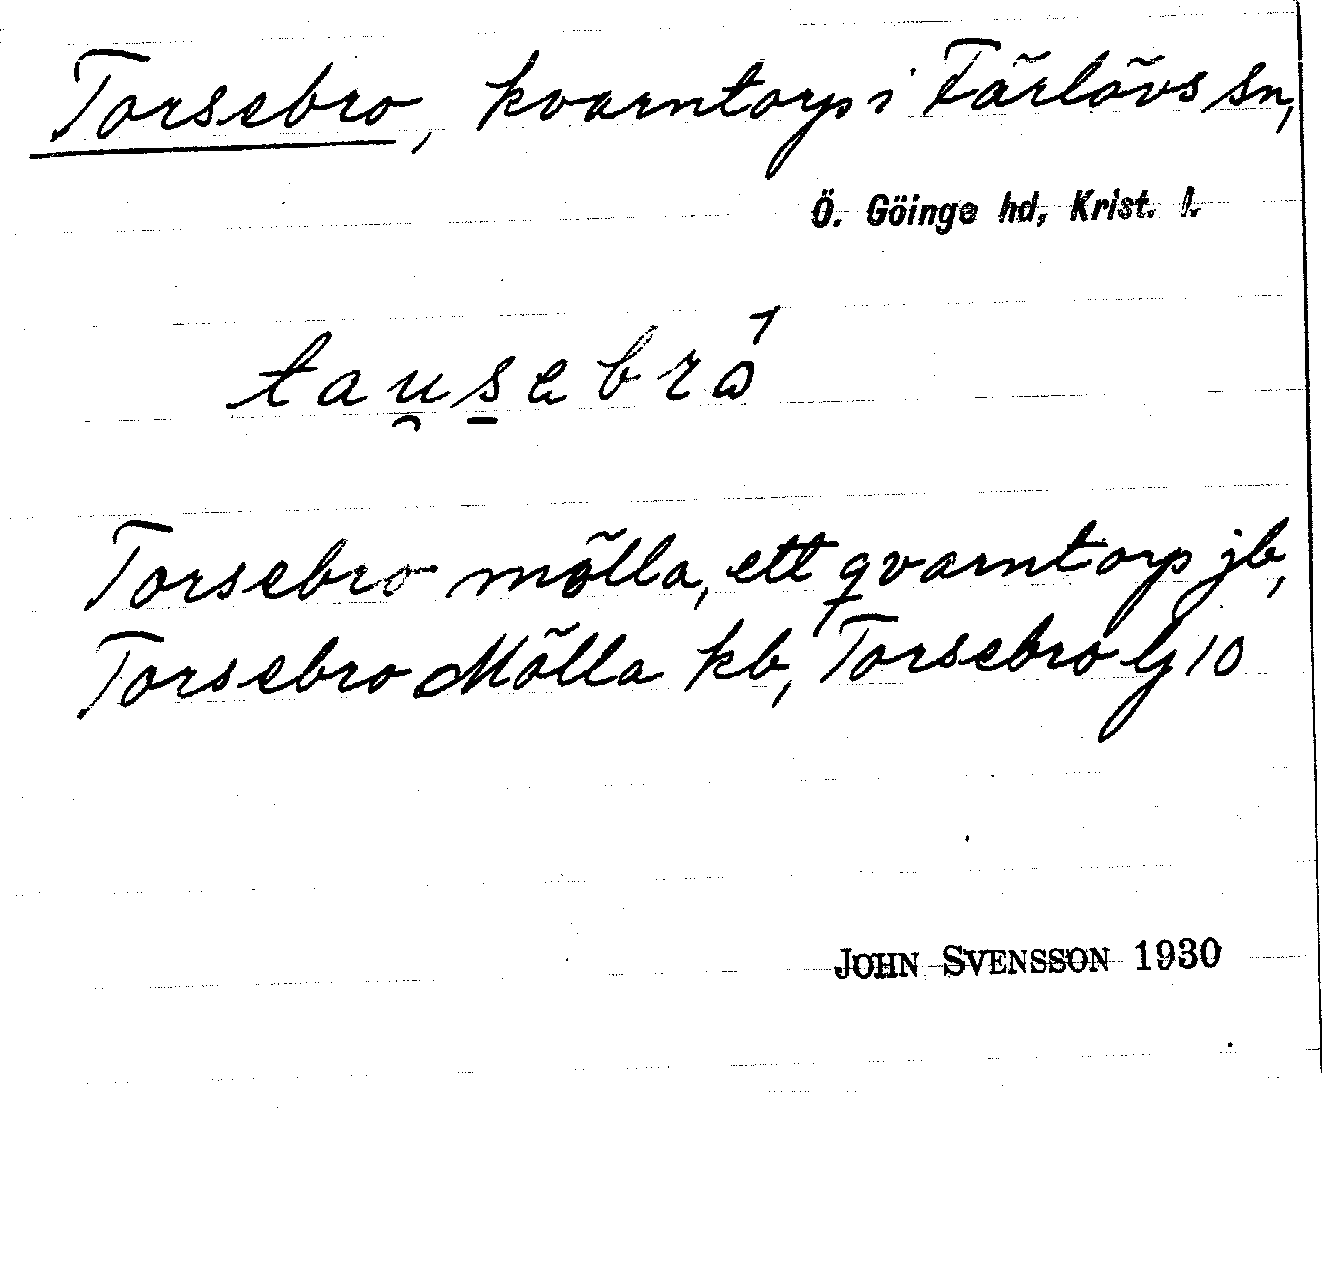 Torsebro, kvarntorp i Färlövs sn,
Ö. Göinge hd, Krist. l.
tau̯s̱ebró
Torsebro mölla, ett qvarntorp jb,
Torsebro Mölla kb, Torsebro lj 10
JOHN SVENSSON 1930